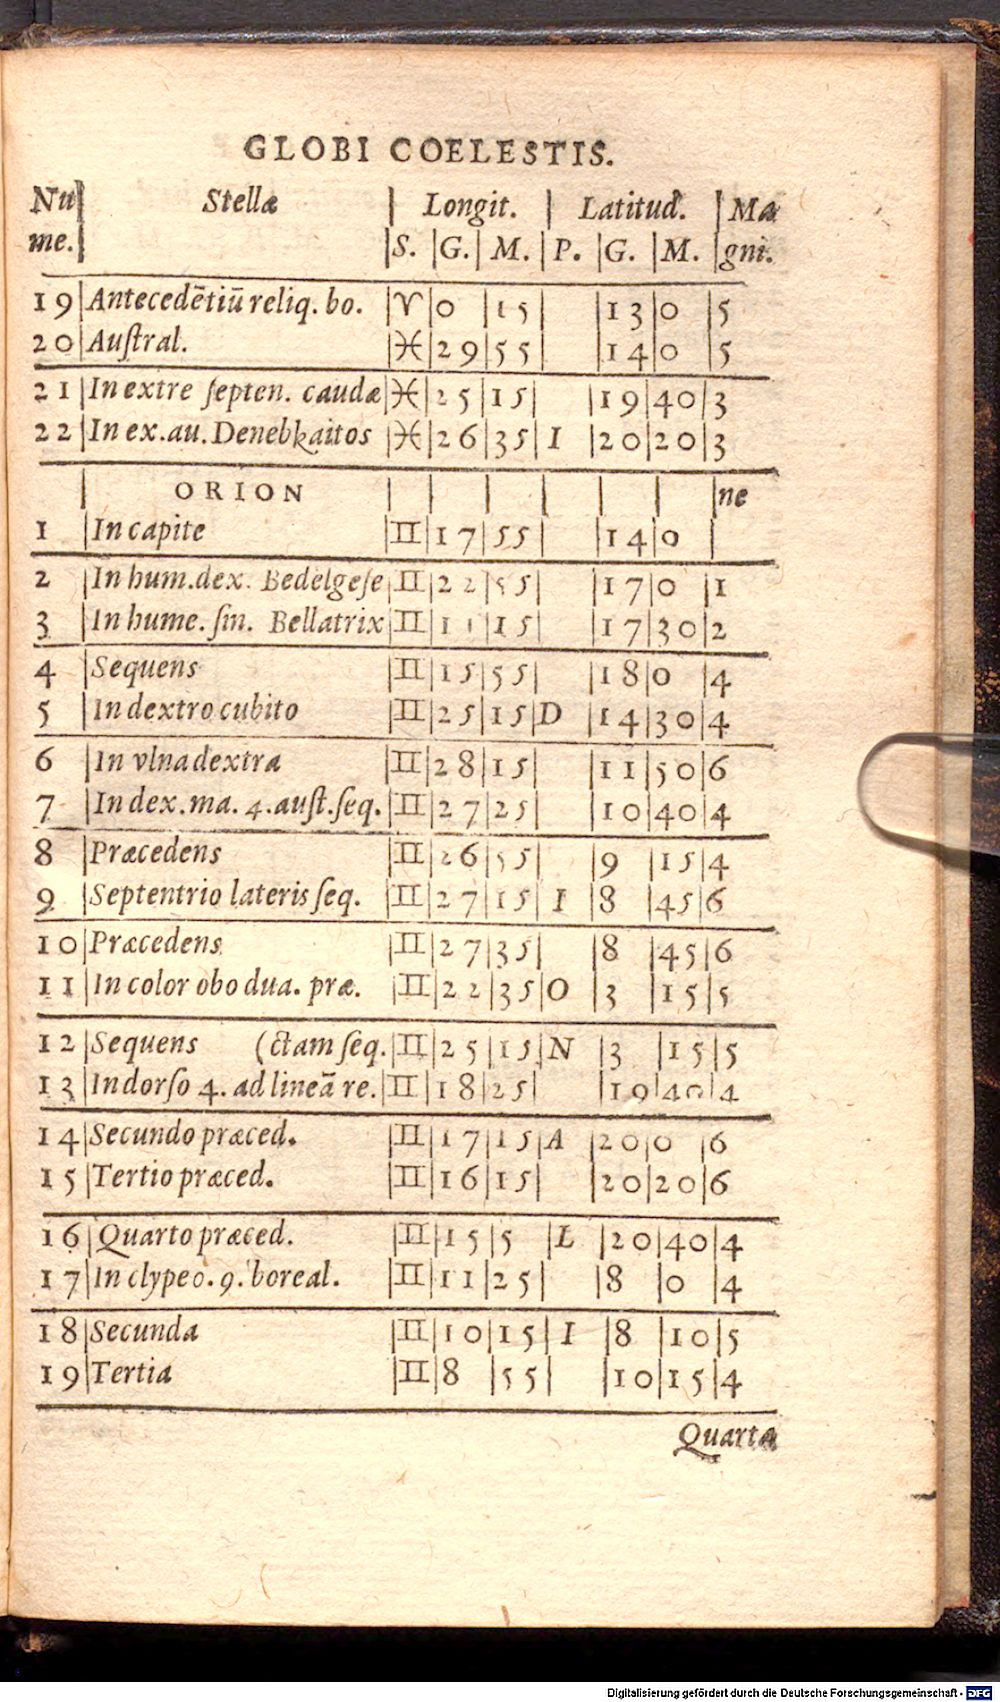 GLOBI COELESTIS.
Nu | Stellæ | Longit. | Latitud. | Ma
me. | | S. | G. | M. | P. | G. | M. | gni.
19 | Antecedētiū reliq. bo. | ♈ | 0 | 15 | | 13 | 0 | 5
20 | Auſtral. | ♓ | 29 | 55 | | 14 | 0 | 5
21 | In extre ſepten. caudæ | ♓ | 25 | 15 | | 19 | 40 | 3
22 | In ex. au. Denebkaitos | ♓ | 26 | 35 | I | 20 | 20 | 3
| ORION | | | | | | | ne
1 | In capite | ♊ | 17 | 55 | | 14 | 0 |
2 | In hum. dex. Bedelgeſe | ♊ | 22 | 55 | | 17 | 0 | 1
3 | In hume. ſin. Bellatrix | ♊ | 11 | 15 | | 17 | 30 | 2
4 | Sequens | ♊ | 15 | 55 | | 18 | 0 | 4
5 | In dextro cubito | ♊ | 25 | 15 | D | 14 | 30 | 4
6 | In vlna dextra | ♊ | 28 | 15 | | 11 | 50 | 6
7 | In dex. ma. 4. auſt. ſeq. | ♊ | 27 | 25 | | 10 | 40 | 4
8 | Præcedens | ♊ | 26 | 55 | | 9 | 15 | 4
9 | Septentrio lateris ſeq. | ♊ | 27 | 15 | I | 8 | 45 | 6
10 | Præcedens | ♊ | 27 | 35 | | 8 | 45 | 6
11 | In color obo dua. præ. | ♊ | 22 | 35 | O | 3 | 15 | 5
12 | Sequens (ctam ſeq. | ♊ | 25 | 15 | N | 3 | 15 | 5
13 | In dorſo 4. ad lineā re. | ♊ | 18 | 25 | | 19 | 40 | 4
14 | Secundo præced. | ♊ | 17 | 15 | A | 20 | 0 | 6
15 | Tertio præced. | ♊ | 16 | 15 | | 20 | 20 | 6
16 | Quarto præced. | ♊ | 15 | 5 | L | 20 | 40 | 4
17 | In clypeo. 9. boreal. | ♊ | 11 | 25 | | 8 | 0 | 4
18 | Secunda | ♊ | 10 | 15 | I | 8 | 10 | 5
19 | Tertia | ♊ | 8 | 55 | | 10 | 15 | 4
Quarta
Digitalisierung gefördert durch die Deutsche Forschungsgemeinschaft - DFG